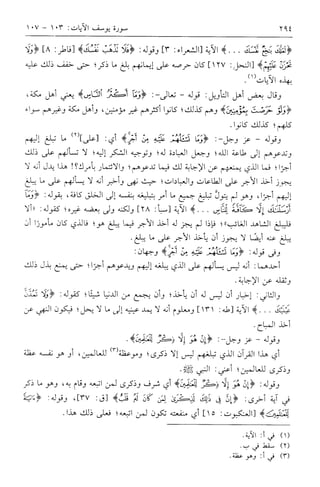 ٢٩٤
سورة يوسف الآيات: ١٠٣ - ١٠٧
﴿لَعَلَّكَ بَٰخِعٌ نَّفْسَكَ . . .﴾ الآية [الشعراء: ٣] وقوله: ﴿فَلَا تَذْهَبْ نَفْسُكَ﴾ [فاطر: ٨] ﴿وَلَا
تَحْزَنْ عَلَيْهِمْ﴾ [النحل: ١٢٧] كان حرصه على إيمانهم بلغ ما ذكر؛ حتى خفف ذلك عليه
بهذه الآيات(١).
وقال بعض أهل التأويل: قوله - تعالى-: ﴿وَمَآ أَكْثَرُ ٱلنَّاسِ﴾ يعني أهل مكة،
﴿وَلَوْ حَرَصْتَ بِمُؤْمِنِينَ﴾ وهم كذلك؛ كانوا أكثرهم غير مؤمنين، وأهل مكة وغيرهم سواء
كلهم؛ كذلك كانوا.
وقوله - عز وجل-: ﴿وَمَا تَسْـَٔلُهُمْ عَلَيْهِ مِنْ أَجْرٍ﴾ أي: [على](٢) ما تبلغ إليهم
وتدعوهم إلى طاعة الله؛ وجعل العبادة له؛ وتوجيه الشكر إليه؛ لا تسألهم على ذلك
أجرًا؛ فما الذي يمنعهم عن الإجابة لك فيما تدعوهم؛ والائتمار بأمرك؟! هذا يدل أنه لا
يجوز أخذ الأجر على الطاعات والعبادات؛ حيث نهى وأخبر أنه لا يسألهم على ما يبلغ
إليهم أجرًا، وهو لم يتولَّ تبليغ جميع ما أمر بتبليغه بنفسه إلى الخلق كافة، بقوله: ﴿وَمَآ
أَرْسَلْنَٰكَ إِلَّا كَآفَّةً لِّلنَّاسِ . . .﴾ الآية [سبأ: ٢٨] ولكنه ولى بعضه غيره؛ كقوله: «ألا
فليبلغ الشاهد الغائب»؛ فإذا لم يجز له أخذ الأجر فيما يبلغ هو؛ فالذي كان مأمورًا أن
يبلغ عنه أيضًا لا يجوز أن يأخذ الأجر على ما يبلغ.
وفي قوله: ﴿وَمَا تَسْـَٔلُهُمْ عَلَيْهِ مِنْ أَجْرٍ﴾ وجهان:
أحدهما: أنه ليس يسألهم على الذي يبلغه إليهم ويدعوهم أجرًا؛ حتى يمنع بذل ذلك
وثقله عن الإجابة.
والثاني: إخبار أن ليس له أن يأخذ؛ وأن يجمع من الدنيا شيئًا؛ كقوله: ﴿وَلَا تَمُدَّنَّ
عَيْنَيْكَ . . .﴾ الآية [طه: ١٣١] ومعلوم أنه لا يمد عينيه إلى ما لا يحل؛ فيكون النهي عن
أخذ المباح.
وقوله - عز وجل-: ﴿إِنْ هُوَ إِلَّا ذِكْرٌ لِّلْعَٰلَمِينَ﴾.
أي هذا القرآن الذي تبلغهم ليس إلا ذكرى؛ وموعظة(٣) للعالمين، أو هو نفسه عظة
وذكرى للعالمين؛ أعني: النبي ﷺ.
وقوله: ﴿إِنْ هُوَ إِلَّا ذِكْرٌ لِّلْعَٰلَمِينَ﴾ أي شرف وذكرى لمن اتبعه وقام به، وهو ما ذكر
في آية أخرى: ﴿إِنَّ فِى ذَٰلِكَ لَذِكْرَىٰ لِمَن كَانَ لَهُۥ قَلْبٌ﴾ [ق: ٣٧]، وقوله: ﴿ءَايَةً
لِّلْعَٰلَمِينَ﴾ [العنكبوت: ١٥] أي منفعته تكون لمن اتبعه؛ فعلى ذلك هذا.
(١) في أ: الآية.
(٢) سقط في ب.
(٣) في أ: وهو عظة.